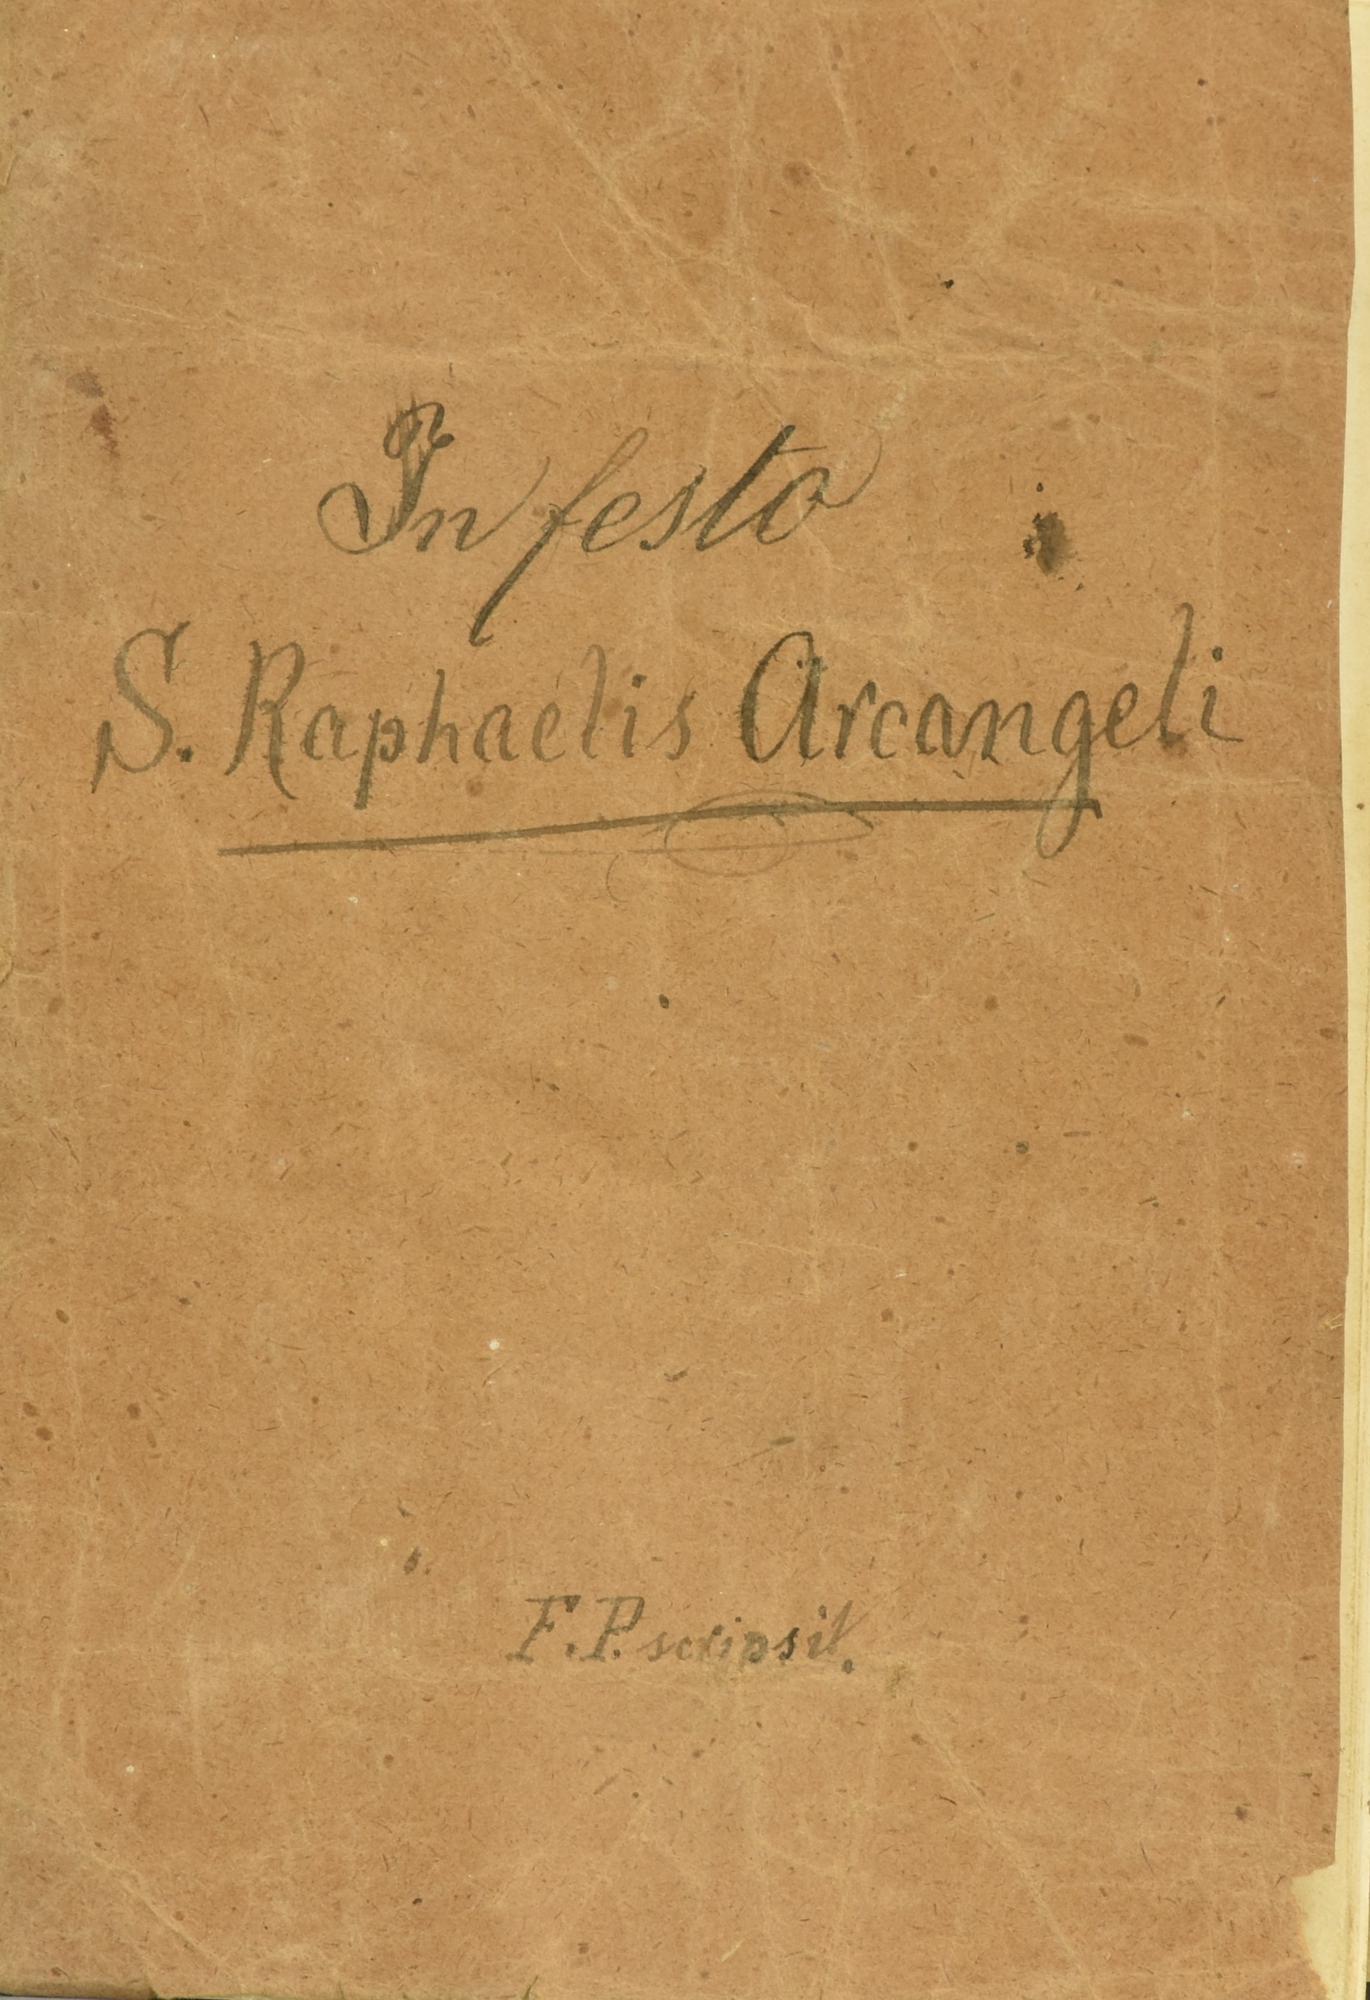 In festo
S. Raphaelis Arcangeli
F. P. scripsit.